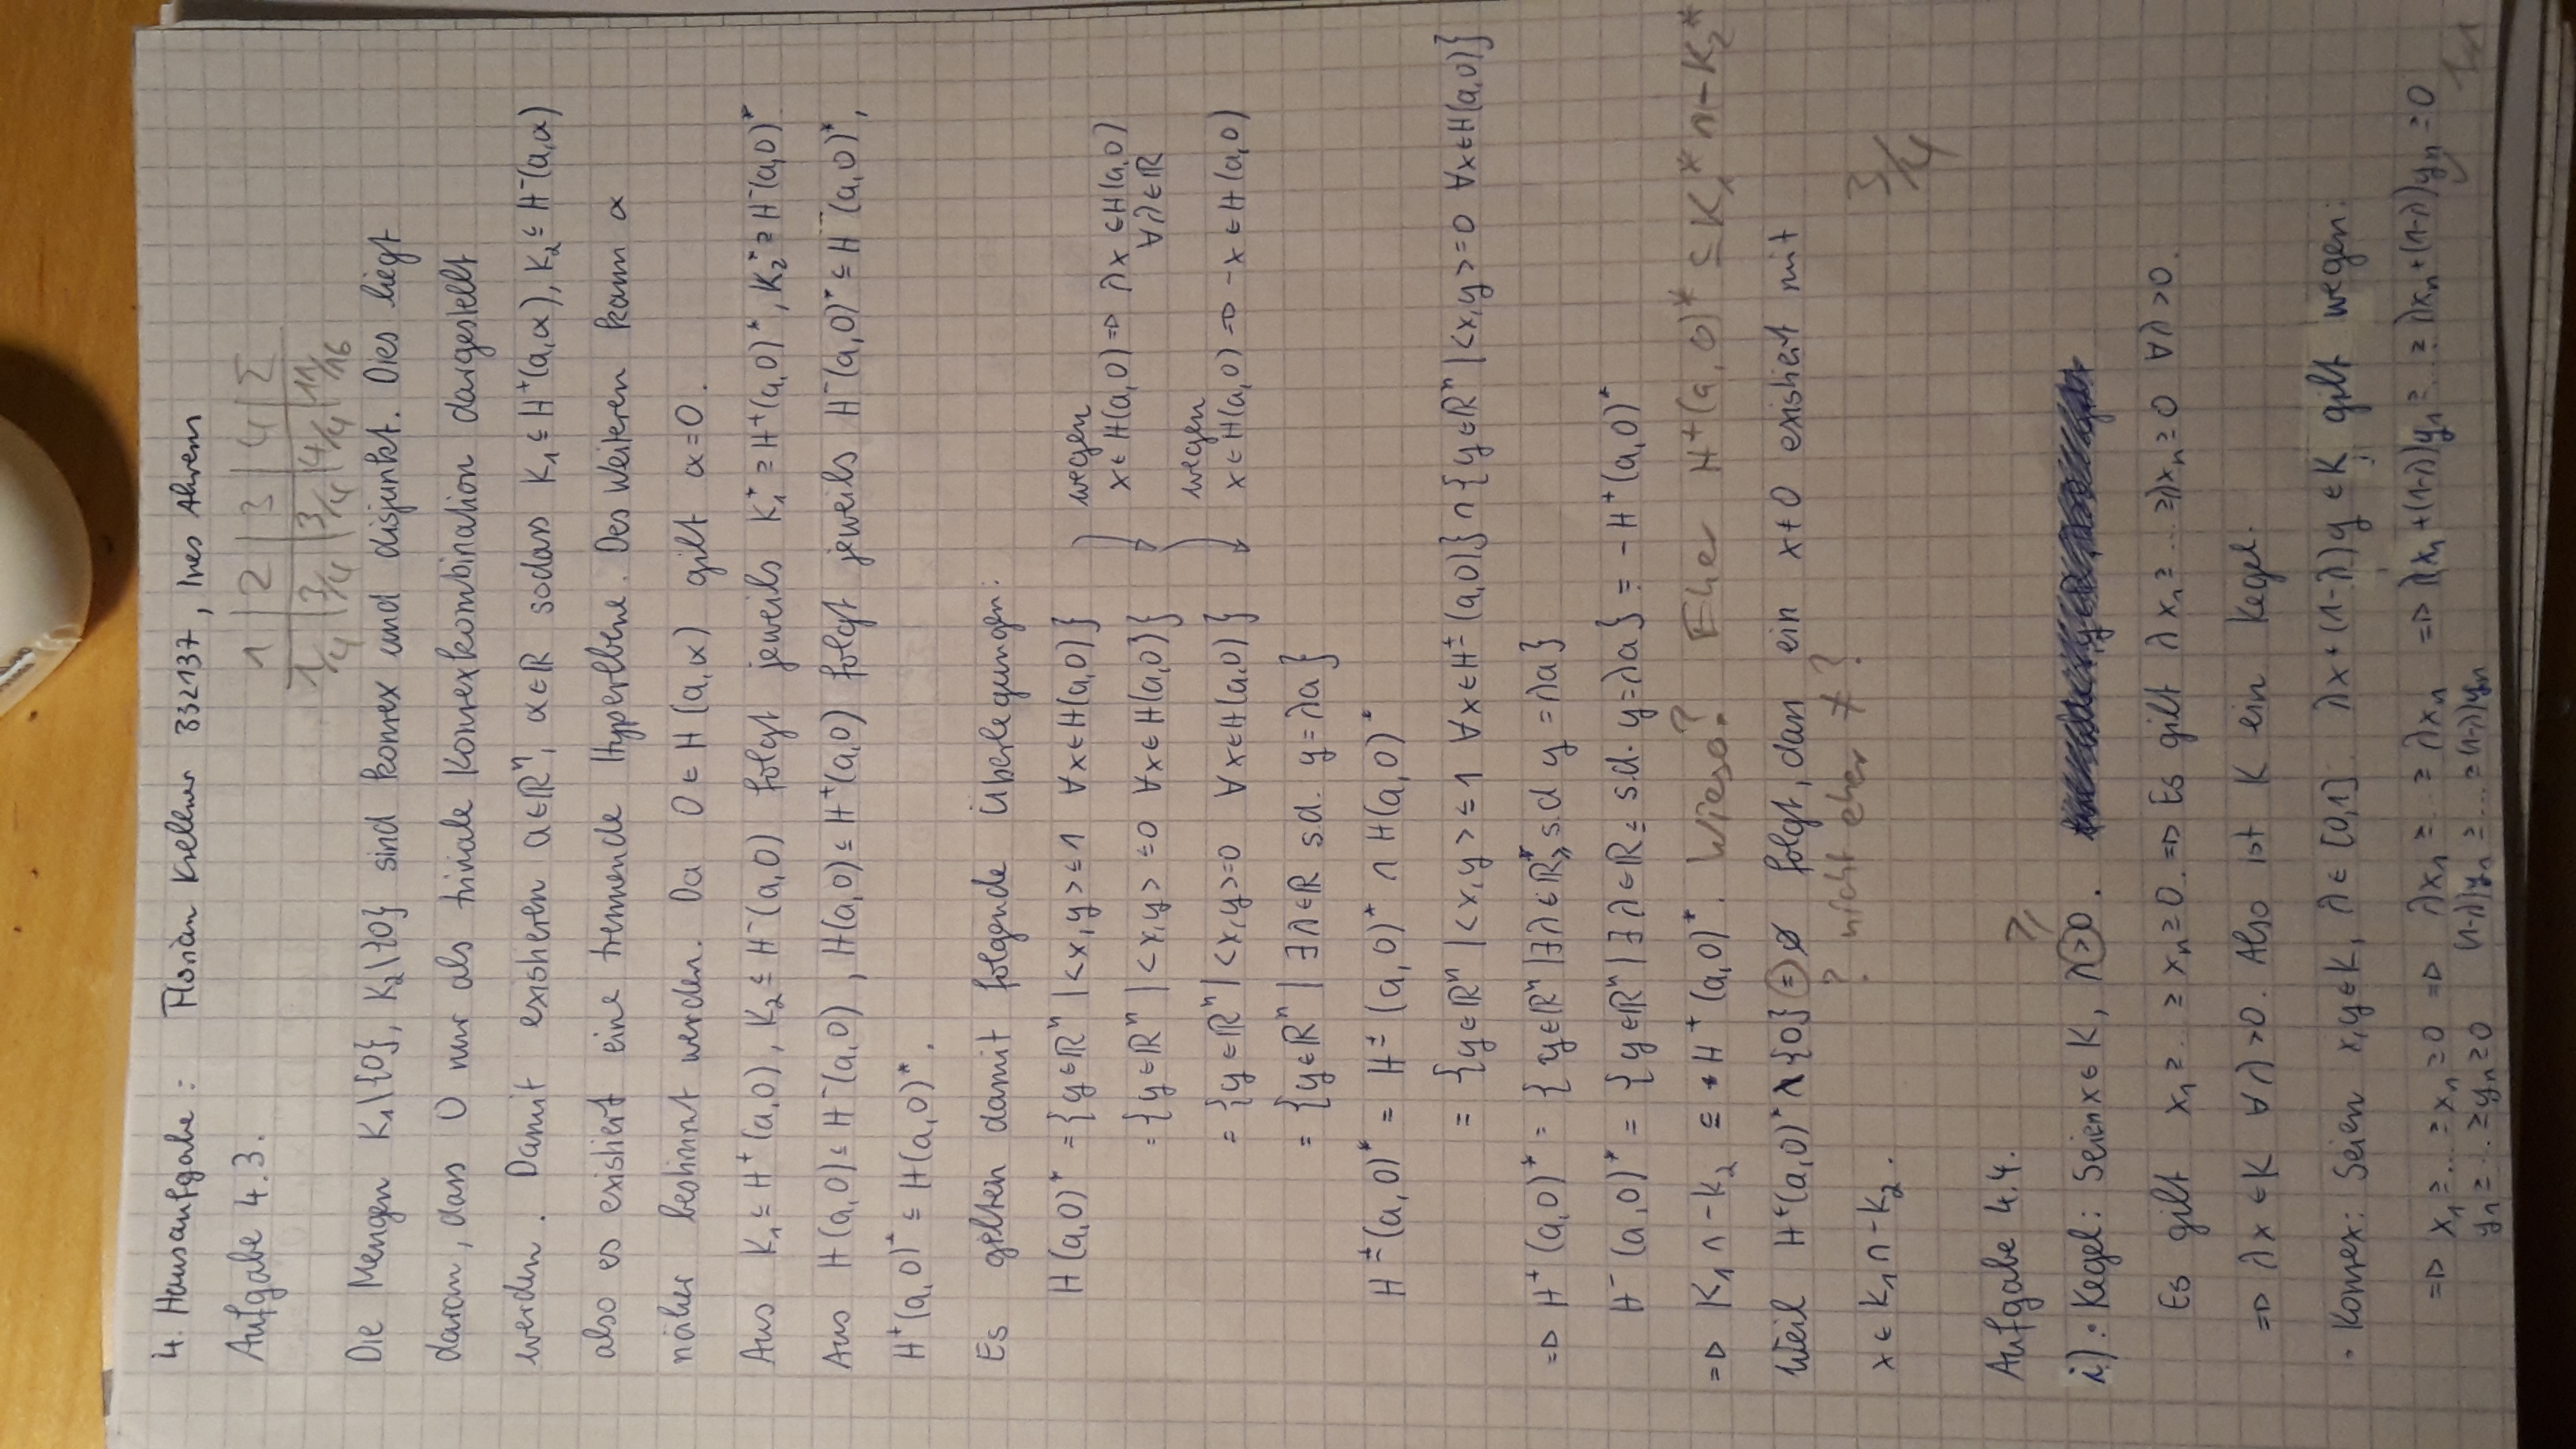 4. Hausaufgabe: Florian Kollner 332137, Ines Ahrens
Aufgabe 4.3.
1 | 2 | 3 | 4 | Σ
1/4 | 3/4 | 3/4 | 4/4 | 11/16
Die Mengen K₁\{0}, K₂\{0} sind konvex und disjunkt. Dies liegt
daran, dass 0 nur als triviale Konvexkombination dargestellt
werden. Damit existieren a∈ℝⁿ, α∈ℝ sodass K₁⊆H⁺(a,α), K₂⊆H⁻(a,α)
also es existiert eine trennende Hyperebene. Des Weiteren kann α
näher bestimmt werden. Da 0∈H(a,α) gilt α=0.
Aus K₁⊆H⁺(a,0), K₂⊆H⁻(a,0) folgt jeweils K₁*⊇H⁺(a,0)*, K₂*⊇H⁻(a,0)*
Aus H(a,0)⊆H⁻(a,0), H(a,0)⊆H⁺(a,0) folgt jeweils H⁻(a,0)*⊆H⁻(a,0)*,
H⁺(a,0)*⊆H(a,0)*.
Es gelten damit folgende Überlegungen:
H(a,0)* = {y∈ℝⁿ | <x,y>≤1 ∀x∈H(a,0)} wegen
x∈H(a,0) ⇒ λx∈H(a,0)
= {y∈ℝⁿ | <x,y>≤0 ∀x∈H(a,0)} ∀λ∈ℝ
wegen
= {y∈ℝⁿ | <x,y>=0 ∀x∈H(a,0)} x∈H(a,0) ⇒ -x∈H(a,0)
= {y∈ℝⁿ | ∃λ∈ℝ s.d. y=λa}
H^±(a,0)* = H^±(a,0)* ∩ H(a,0)*
= {y∈ℝⁿ | <x,y>≤1 ∀x∈H^±(a,0)} ∩ {y∈ℝⁿ | <x,y>=0 ∀x∈H(a,0)}
⇒ H⁺(a,0)* = {y∈ℝⁿ | ∃λ∈ℝ≥ s.d y=λa}
H⁻(a,0)* = {y∈ℝⁿ | ∃λ∈ℝ≤ s.d. y=λa} = -H⁺(a,0)*
⇒ K₁∩-K₂ ⊆ H⁺(a,0)*. Wieso? Eher H⁺(a,0)* ⊆ K₁*∩-K₂*
Weil H⁺(a,0)*\{0} = ∅ folgt, dass ein x≠0 existiert mit
? nicht eher ≠?
x∈K₁∩-K₂.
3/4
Aufgabe 4.4.
≥
i) · Kegel: Seien x∈K, λ>0.
Es gilt x₁≥...≥xₙ≥0. ⇒ Es gilt λx₁≥...≥λxₙ≥0 ∀λ>0.
⇒ λx∈K ∀λ>0. Also ist K ein Kegel.
· Konvex: Seien x,y∈K, λ∈[0,1]. λx+(1-λ)y∈K gilt wegen:
⇒ x₁≥...≥xₙ≥0 ⇒ λx₁≥...≥λxₙ ⇒ λx₁+(1-λ)y₁≥...≥λxₙ+(1-λ)yₙ≥0
y₁≥...≥yₙ≥0 (1-λ)y₁≥...≥(1-λ)yₙ